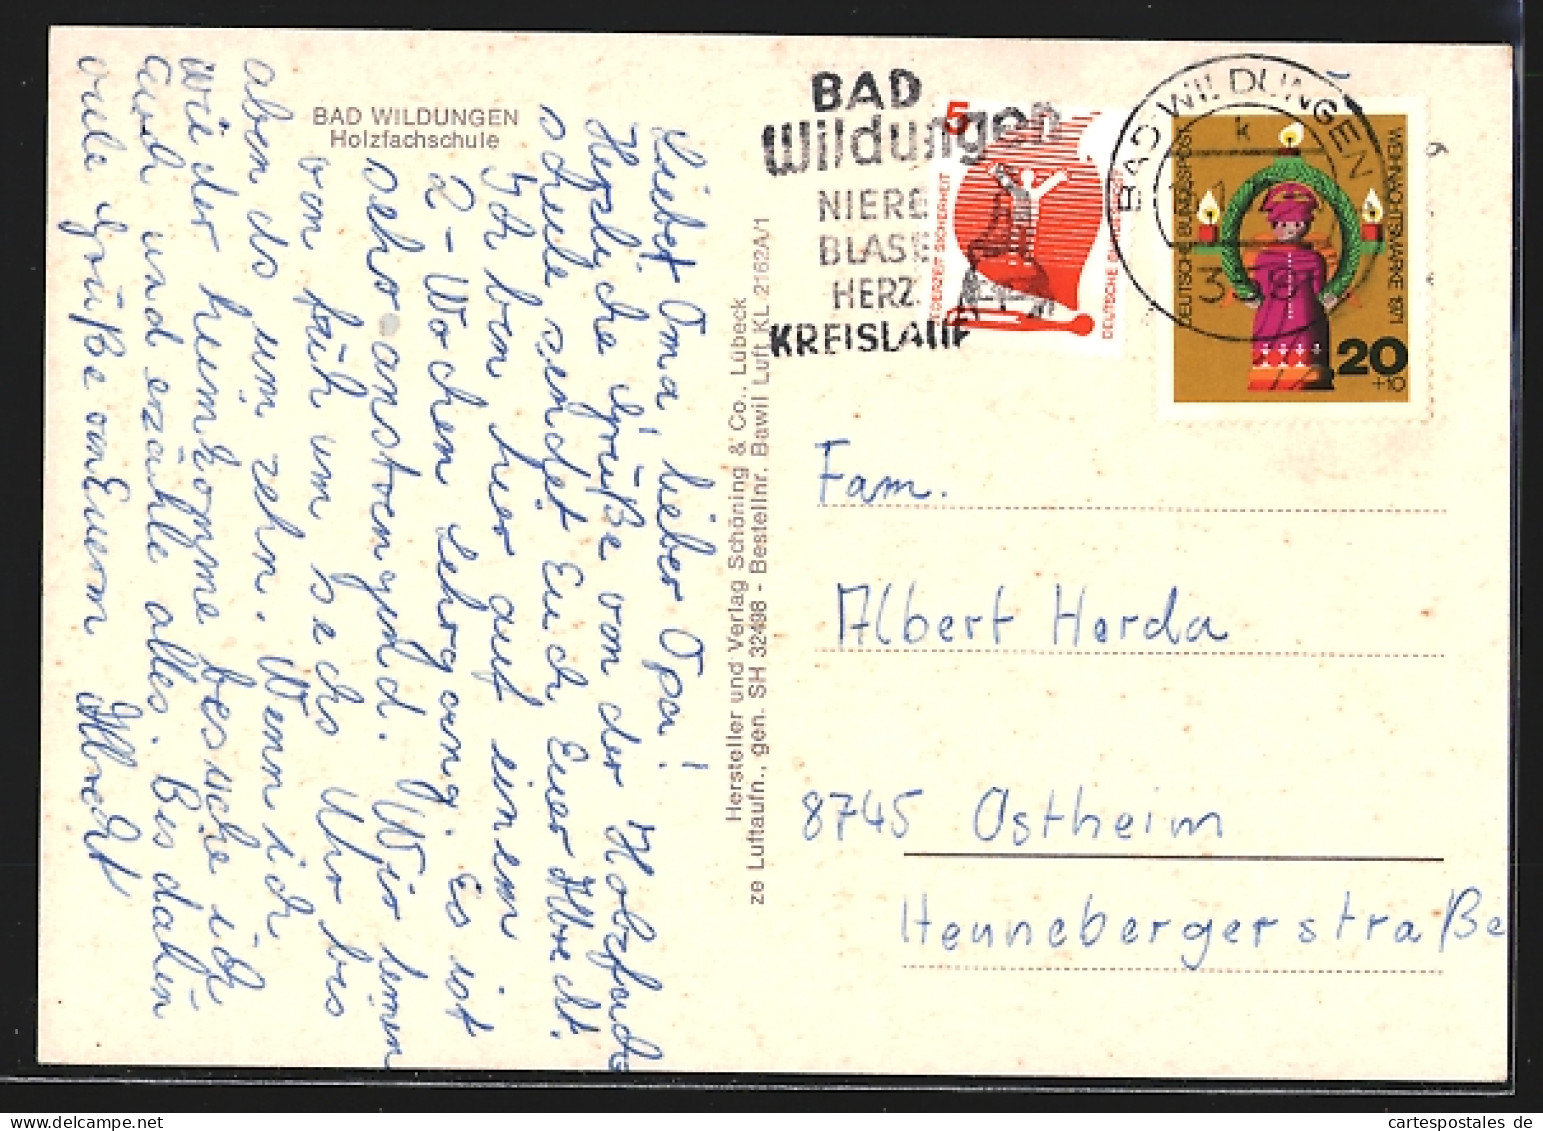 BAD WILDUNGEN
Holzfachschule
Liebe Oma, lieber Opa!
Herzliche Grüße von der Holzfach-
schule sendet Euch Euer Albrecht.
Ich bin hier auf einem
2-Wochen Lehrgang. Es ist
sehr anstrengend. Wir lernen
von früh um sechs Uhr bis
abends um zehn. Wenn ich
wieder heimkomme besuche ich
Euch und erzähle alles. Bis dahin
viele Grüße von Eurem Albrecht
Hersteller und Verlag Schöning & Co., Lübeck
ze Luftaufn., gen. SH 32498 - Bestellnr. Bawil Luft KL 2162A/1
BAD
Wildungen
NIERE
BLASE
HERZ
KREISLAUF
5
JEDERZEIT SICHERHEIT
DEUTSCHE BUNDESPOST
BAD WILDUNGEN
k
DEUTSCHE BUNDESPOST
WEIHNACHTSMARKE 1971
20
+10
Fam.
Albert Herda
8745 Ostheim
Hennebergerstraße
cartespostales.de